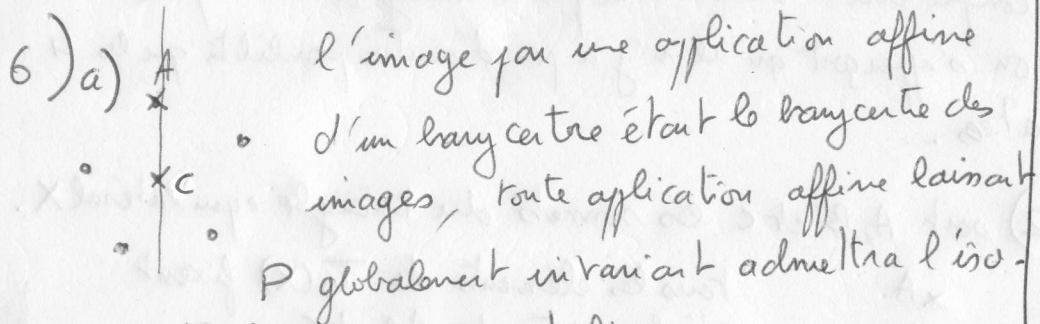 6) a) A l'image par une application affine
d'un barycentre étant le barycentre des
C
images, toute application affine laissant
P globalement invariant admettra l'iso-